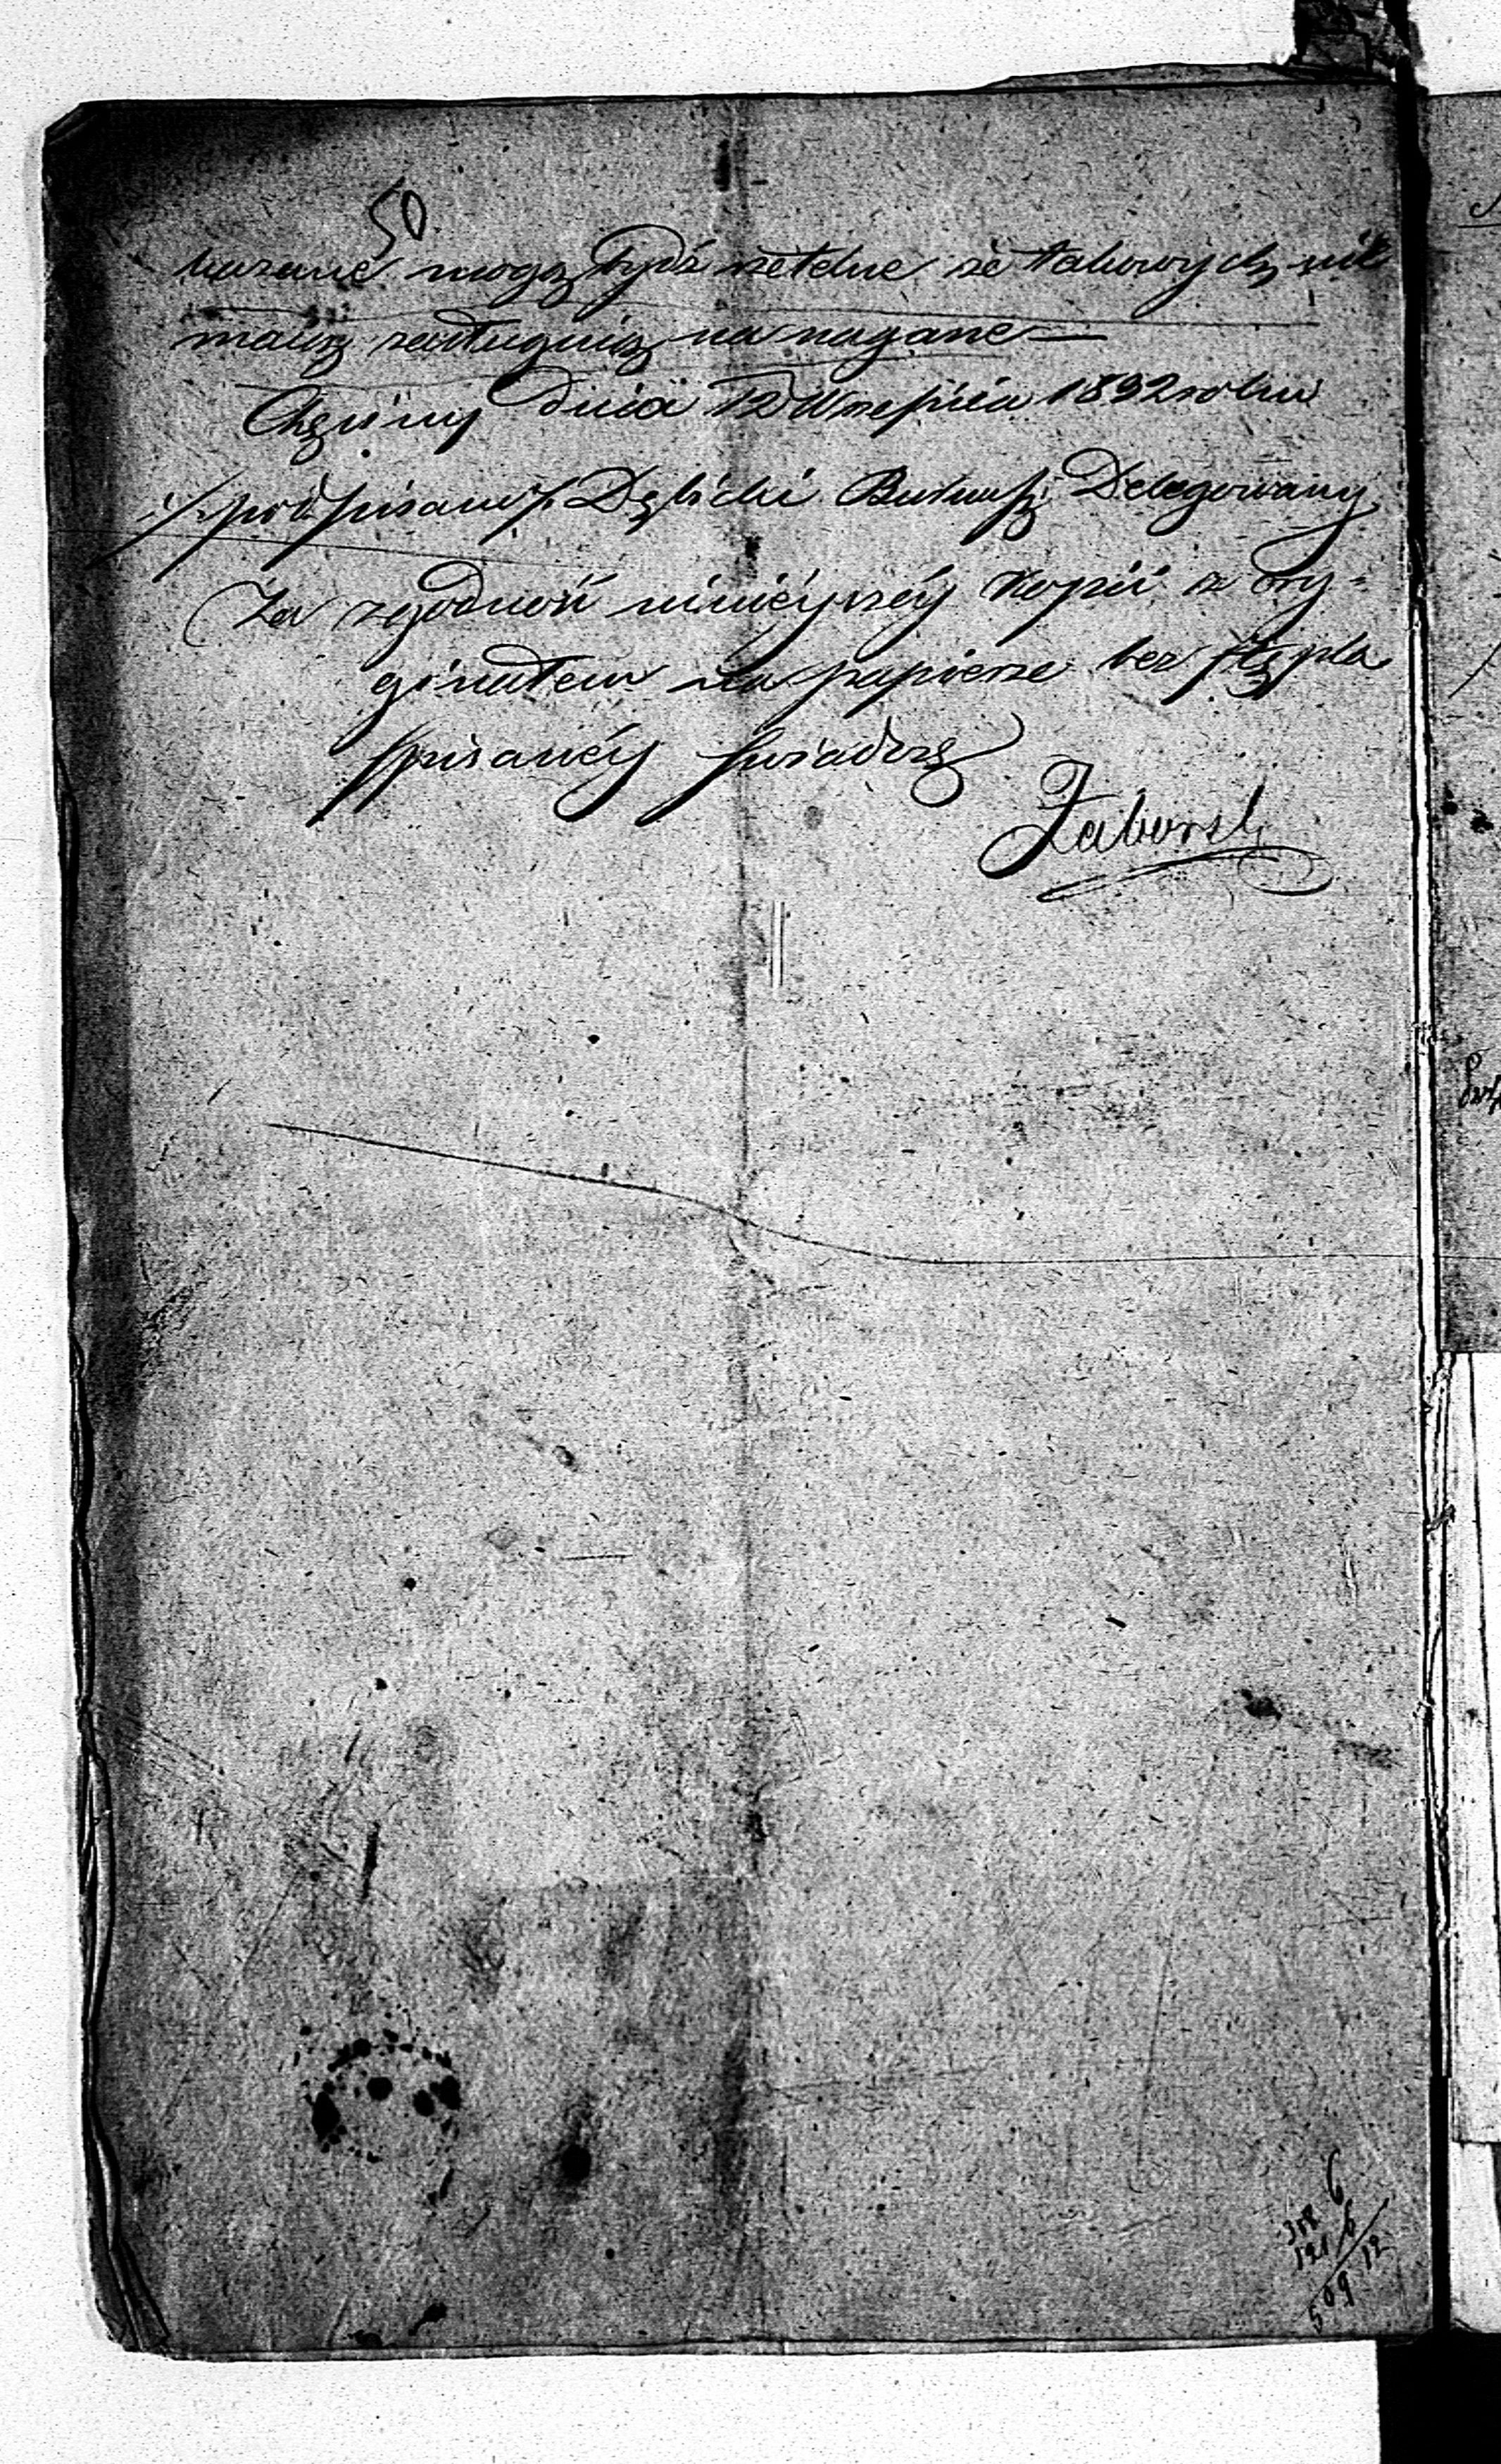 50
kazane mogą bydź rzetelne że takowych nit
maią zasługuią na naganę —
Chęciny dnia 12 Września 1832 roku
/:podpisano:/ Dębicki Burmistrz Delegowany
Za zgodność ninieyszéy Kopii z Ory=
ginałem na papierze bez stępla
spisanéy świadczę
Zaborsk
6
6
121
12
509